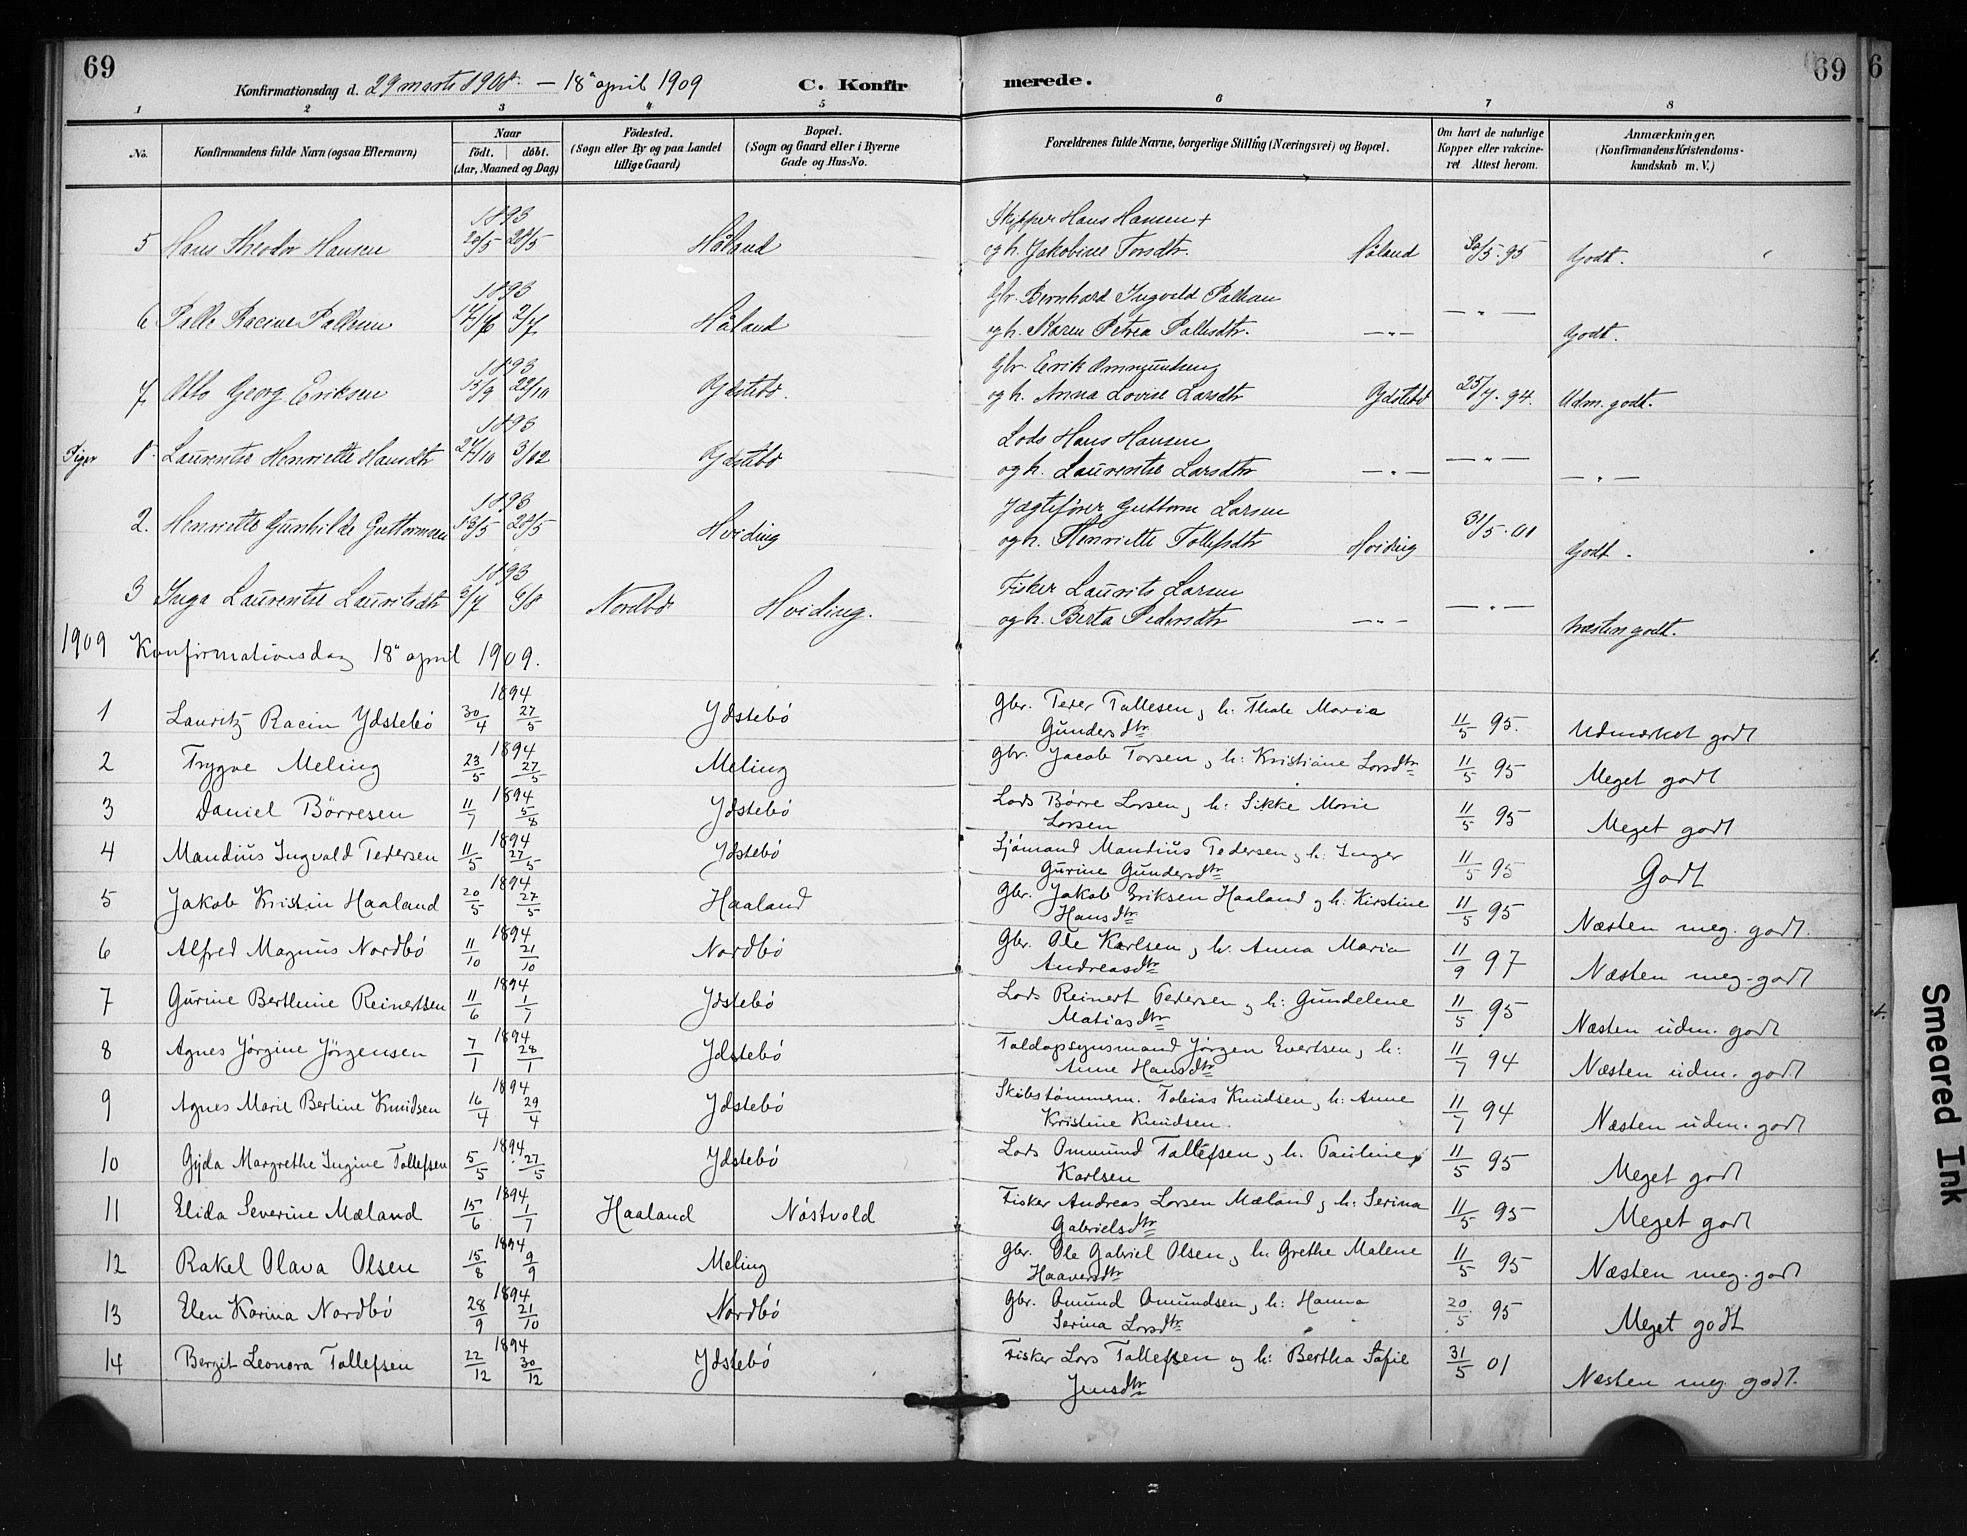 69
Konfirmationsdag d. 29 marts 1908. — 18de april 1909
C. Konfirmerede.
69
6
1 2 3 4 5 6 7 8
No.
Konfirmandens fulde Navn (ogsaa Efternavn)
Naar
födt. döbt.
(Aar, Maaned og Dag)
Födested.
(Sogn eller By og paa Landet
tillige Gaard)
Bopæl.
(Sogn og Gaard eller i Byerne
Gade og Hus-No.
Forældrenes fulde Navne, borgerlige Stilling (Næringsvei) og Bopæl.
Om havt de naturlige
Kopper eller vakcine-
ret Attest herom.
Anmærkninger,
(Konfirmandens Kristendoms-
kundskab m. V.)
1893 Skipper Hans Hansen +
5 Hans Theodor Hansen 20/5 28/5 Håland og h. Jakobine Torsdtr. Håland 30/5. 95 Godt.
1893 Gbr. Bernhard Ingvald Pallesen
6 Palle Racine Pallesen 17/6 2/7 Håland og h. Karen Petrea Pallesdtr. —„— —„— Godt.
1893 Gbr. Erik Ommundsen
7 Otto Georg Eriksen 15/9 22/10 Ydstebø. og h. Anna Lovise Larsdtr Ydstebø 25/7. 94. Udm. godt.
1893 Lods Hans Hansen
Piger 1. Laurentse Henriette Hansdtr 27/10 3/12 Ydstebø og h. Laurentse Larsdtr —„— —„— —„—
1893 Jægtefører Guttorm Larsen
2. Henriette Gunhilde Guttormsen 13/5 28/5 Hviding og h. Henriette Tollefsdtr Hviding 31/5. 01 Godt.
1893 Fisker Laurits Larsen
3 Inga Laurentse Lauritsdtr 3/7 6/8 Nordbø Hviding. og h. Berta Pedersdtr —„— —„— Næsten godt.
1909 Konfirmationsdag 18de april 1909.
1894 Gbr. Peder Tallesen, h: Thale Maria
1 Lauritz Racin Ydstebö 30/4 27/5 Ydstebö Gundersdtr 11/5 95. Udmærket godt
1894
2 Trygve Meling 23/5 27/5 Meling Gbr. Jacob Torsen, h: Kristiane Larsdtr 11/5 95 Meget godt
1894 Lods Börre Larsen, h: Sikke Marie
3 Daniel Börresen 11/7 5/8 Ydstebö Larsen 11/5 95 Meget godt
1894 Sjömand Mandius Pedersen, h: Inger
4 Mandius Ingvald Pedersen 11/5 27/5 Ydstebö Gurine Gundersdtr 11/5 95 Godt
1894 Gbr. Jakob Eriksen Haaland, h: Kirstine
5 Jakob Kristin Haaland 20/5 27/5 Haaland Hansdtr 11/5 95 Næsten meg. godt.
1894 Gbr. Ole Karlsen, h: Anna Maria
6 Alfred Magnus Nordbö 11/10 21/10 Nordbö Andreasdtr 11/9 97 Næsten meg. godt
1894 Lods Reinert Pedersen, h: Gundelene
7 Gurine Berthine Reinertsen 11/6 1/7 Ydstebö Matiasdtr 11/5 95 Næsten udm. godt
1894 Toldopsynsmand Jörgen Evertsen, h:
8 Agnes Jörgine Jörgensen 7/1 28/1 Ydstebö Anne Hansdtr 11/7 94 Næsten udm. godt
1894 Skibstømmerm. Tobias Knudsen, h: Anne
9 Agnes Marie Bertine Knudsen 16/4 29/4 Ydstebö Kristine Knudsen. 11/7 94 Næsten udm. godt
1894 Lods Ommund Tallefsen, h. Pauline
10 Gyda Margrethe Ingine Tallefsen 5/5 27/5 Ydstebö Karlsen 11/5 95 Meget godt
1894 Fisker Andreas Larsen Mæland, h: Serina
11 Elida Severine Mæland 15/6 1/7 Haaland Nöstvold Gabrielsdtr 11/5 95 Meget godt
1894 Gbr. Ole Gabriel Olsen, h: Grethe Malene
12 Rakel Olava Olsen 15/8 9/9 Meling Haaversdtr 11/5 95 Næsten meg. godt
1894 Gbr. Omund Omundsen, h: Hanna
13 Elen Karina Nordbö 28/9 21/10 Nordbö Serina Larsdtr 20/5 95 Meget godt
1894 Fisker Lars Tallefsen og h: Bertha Sofie
14 Bergit Leonora Tallefsen 22/12 30/12 Ydstebö Jensdtr 31/5 01 Næsten meg. godt.
Smeared Ink